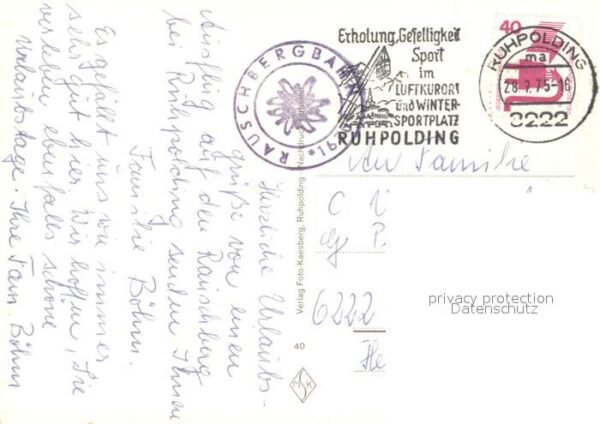 Herzliche Urlaubs-
grüße von einem
Ausflug auf den Rauschberg
bei Ruhpolding senden Ihnen
Familie Böhm.
Es gefällt uns wie immer
sehr gut hier. Wir hoffen, Sie
verleben ebenfalls schöne
Urlaubstage. Ihre Fam. Böhm
RAUSCHBERGBAHN
Erholung, Geselligkeit
Sport
im
LUFTKURORT
und WINTER-
SPORTPLATZ
RUHPOLDING
40
RUHPOLDING
ma
28.7.75-16
8222
An Familie
C
6222
He
Verlag Foto Kansberg, Ruhpolding
40
privacy protection
Datenschutz